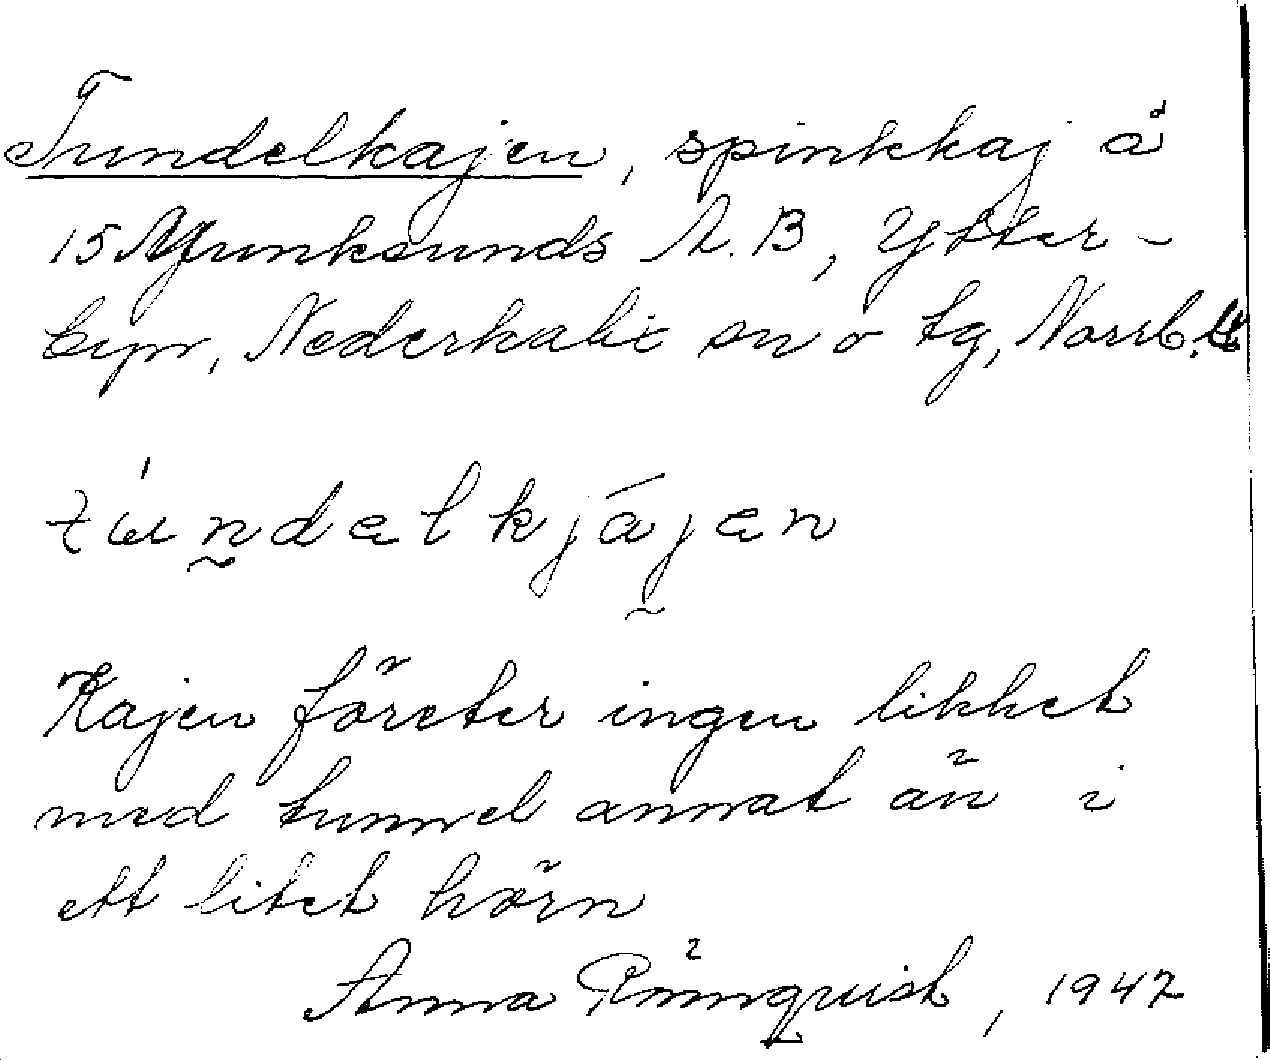 Tundelkajen, spinkkaj å
15 Munksunds A.B, Ytter-
byn, Nederkalix sn o tg, Norrb. l.
túndelkjájen
Kajen företer ingen likhet
med tunnel annat än i
ett litet hörn
Anna Rönnquist, 1947